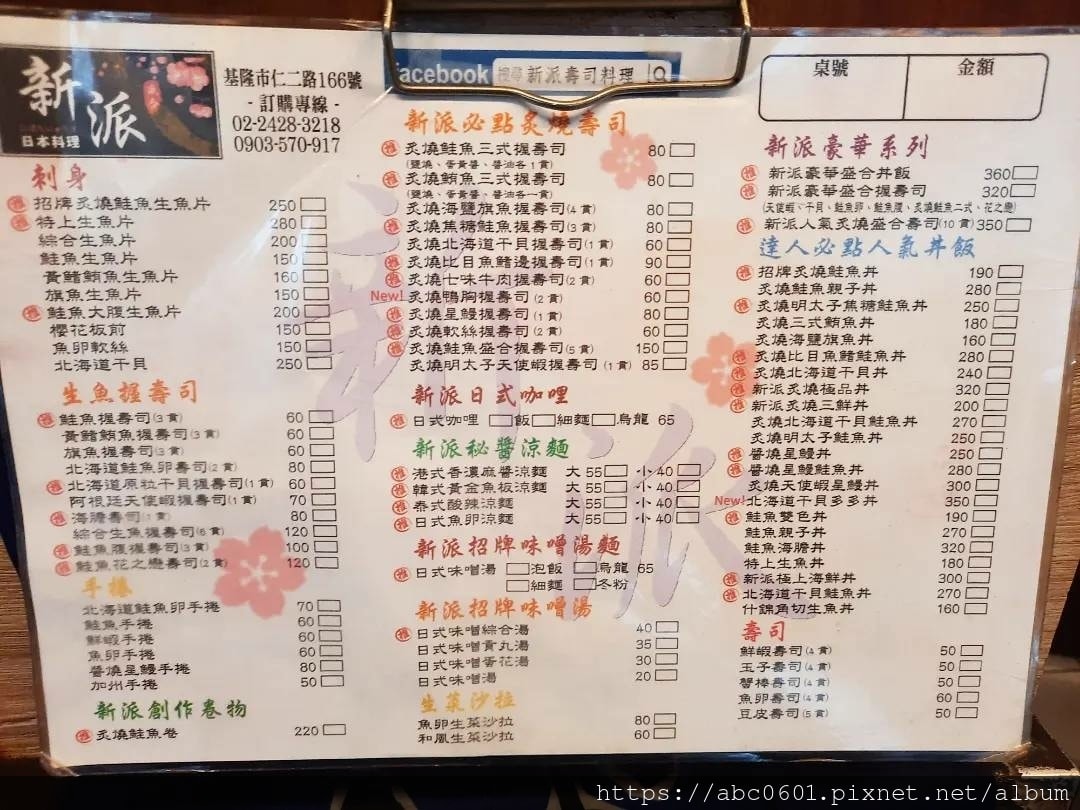 新派
日本料理
基隆市仁二路166號
- 訂購專線 -
02-2428-3218
0903-570-917
刺身
推 招牌炙燒鮭魚生魚片 250
推 特上生魚片 280
綜合生魚片 200
鮭魚生魚片 150
黃鰭鮪魚生魚片 160
旗魚生魚片 150
推 鮭魚大腹生魚片 200
櫻花板前 150
魚卵軟絲 150
北海道干貝 250
生魚握壽司
推 鮭魚握壽司(3貫) 60
黃鰭鮪魚握壽司(3貫) 60
旗魚握壽司(3貫) 60
北海道鮭魚卵壽司(2貫) 80
推 北海道原粒干貝握壽司(1貫) 60
阿根廷天使蝦握壽司(1貫) 70
推 海膽壽司(1貫) 80
綜合生魚握壽司(6貫) 120
推 鮭魚腹握壽司(3貫) 100
推 鮭魚花之戀壽司(2貫) 120
手捲
北海道鮭魚卵手捲 70
鮭魚手捲 60
鮮蝦手捲 60
魚卵手捲 60
醬燒星鰻手捲 80
加州手捲 50
新派創作卷物
推 炙燒鮭魚卷 220
facebook 搜尋 新派壽司料理
新派必點炙燒壽司
推 炙燒鮭魚三式握壽司 80
(鹽燒、蛋黃醬、醬油各1貫)
推 炙燒鮪魚三式握壽司 80
(鹽燒、蛋黃醬、醬油各一貫)
炙燒海鹽旗魚握壽司(4貫) 80
推 炙燒焦糖鮭魚握壽司(3貫) 80
推 炙燒北海道干貝握壽司(1貫) 60
推 炙燒比目魚鰭邊握壽司(1貫) 90
推 炙燒七味牛肉握壽司(2貫) 60
New! 炙燒鴨胸握壽司(2貫) 60
推 炙燒星鰻握壽司(1貫) 80
推 炙燒軟絲握壽司(2貫) 60
推 炙燒鮭魚盛合握壽司(5貫) 150
炙燒明太子天使蝦握壽司(1貫) 85
新派日式咖哩
推 日式咖哩 飯 細麵 烏龍 65
新派秘醬涼麵
推 港式香濃麻醬涼麵 大 55 小 40
推 韓式黃金魚板涼麵 大 55 小 40
推 泰式酸辣涼麵 大 55 小 40
推 日式魚卵涼麵 大 55 小 40
新派招牌味噌湯麵
推 日式味噌湯 泡飯 烏龍 65
細麵 冬粉
新派招牌味噌湯
推 日式味噌綜合湯 40
日式味噌貢丸湯 35
日式味噌蛋花湯 30
日式味噌湯 20
生菜沙拉
魚卵生菜沙拉 80
和風生菜沙拉 60
桌號 金額
新派豪華系列
推 新派豪華盛合丼飯 360
推 新派豪華盛合握壽司 320
(天使蝦、干貝、鮭魚卵、鮭魚腹、炙燒鮭魚二式、花之戀)
推 新派人氣炙燒盛合壽司(10貫) 350
達人必點人氣丼飯
推 招牌炙燒鮭魚丼 190
炙燒鮭魚親子丼 280
推 炙燒明太子焦糖鮭魚丼 250
炙燒三式鮪魚丼 180
炙燒海鹽旗魚丼 160
推 炙燒比目魚鰭鮭魚丼 280
推 炙燒北海道干貝丼 240
推 新派炙燒極品丼 320
推 新派炙燒三鮮丼 200
炙燒北海道干貝鮭魚丼 270
炙燒明太子鮭魚丼 250
推 醬燒星鰻丼 250
推 醬燒星鰻鮭魚丼 280
炙燒天使蝦星鰻丼 300
New! 北海道干貝多多丼 350
推 鮭魚雙色丼 190
鮭魚親子丼 270
鮭魚海膽丼 320
特上生魚丼 180
推 新派極上海鮮丼 300
推 北海道干貝鮭魚丼 270
什錦角切生魚丼 160
壽司
鮮蝦壽司(4貫) 50
玉子壽司(4貫) 50
蟹棒壽司(4貫) 50
魚卵壽司(4貫) 60
豆皮壽司(5貫) 50
新派
https://abc0601.pixnet.net/album